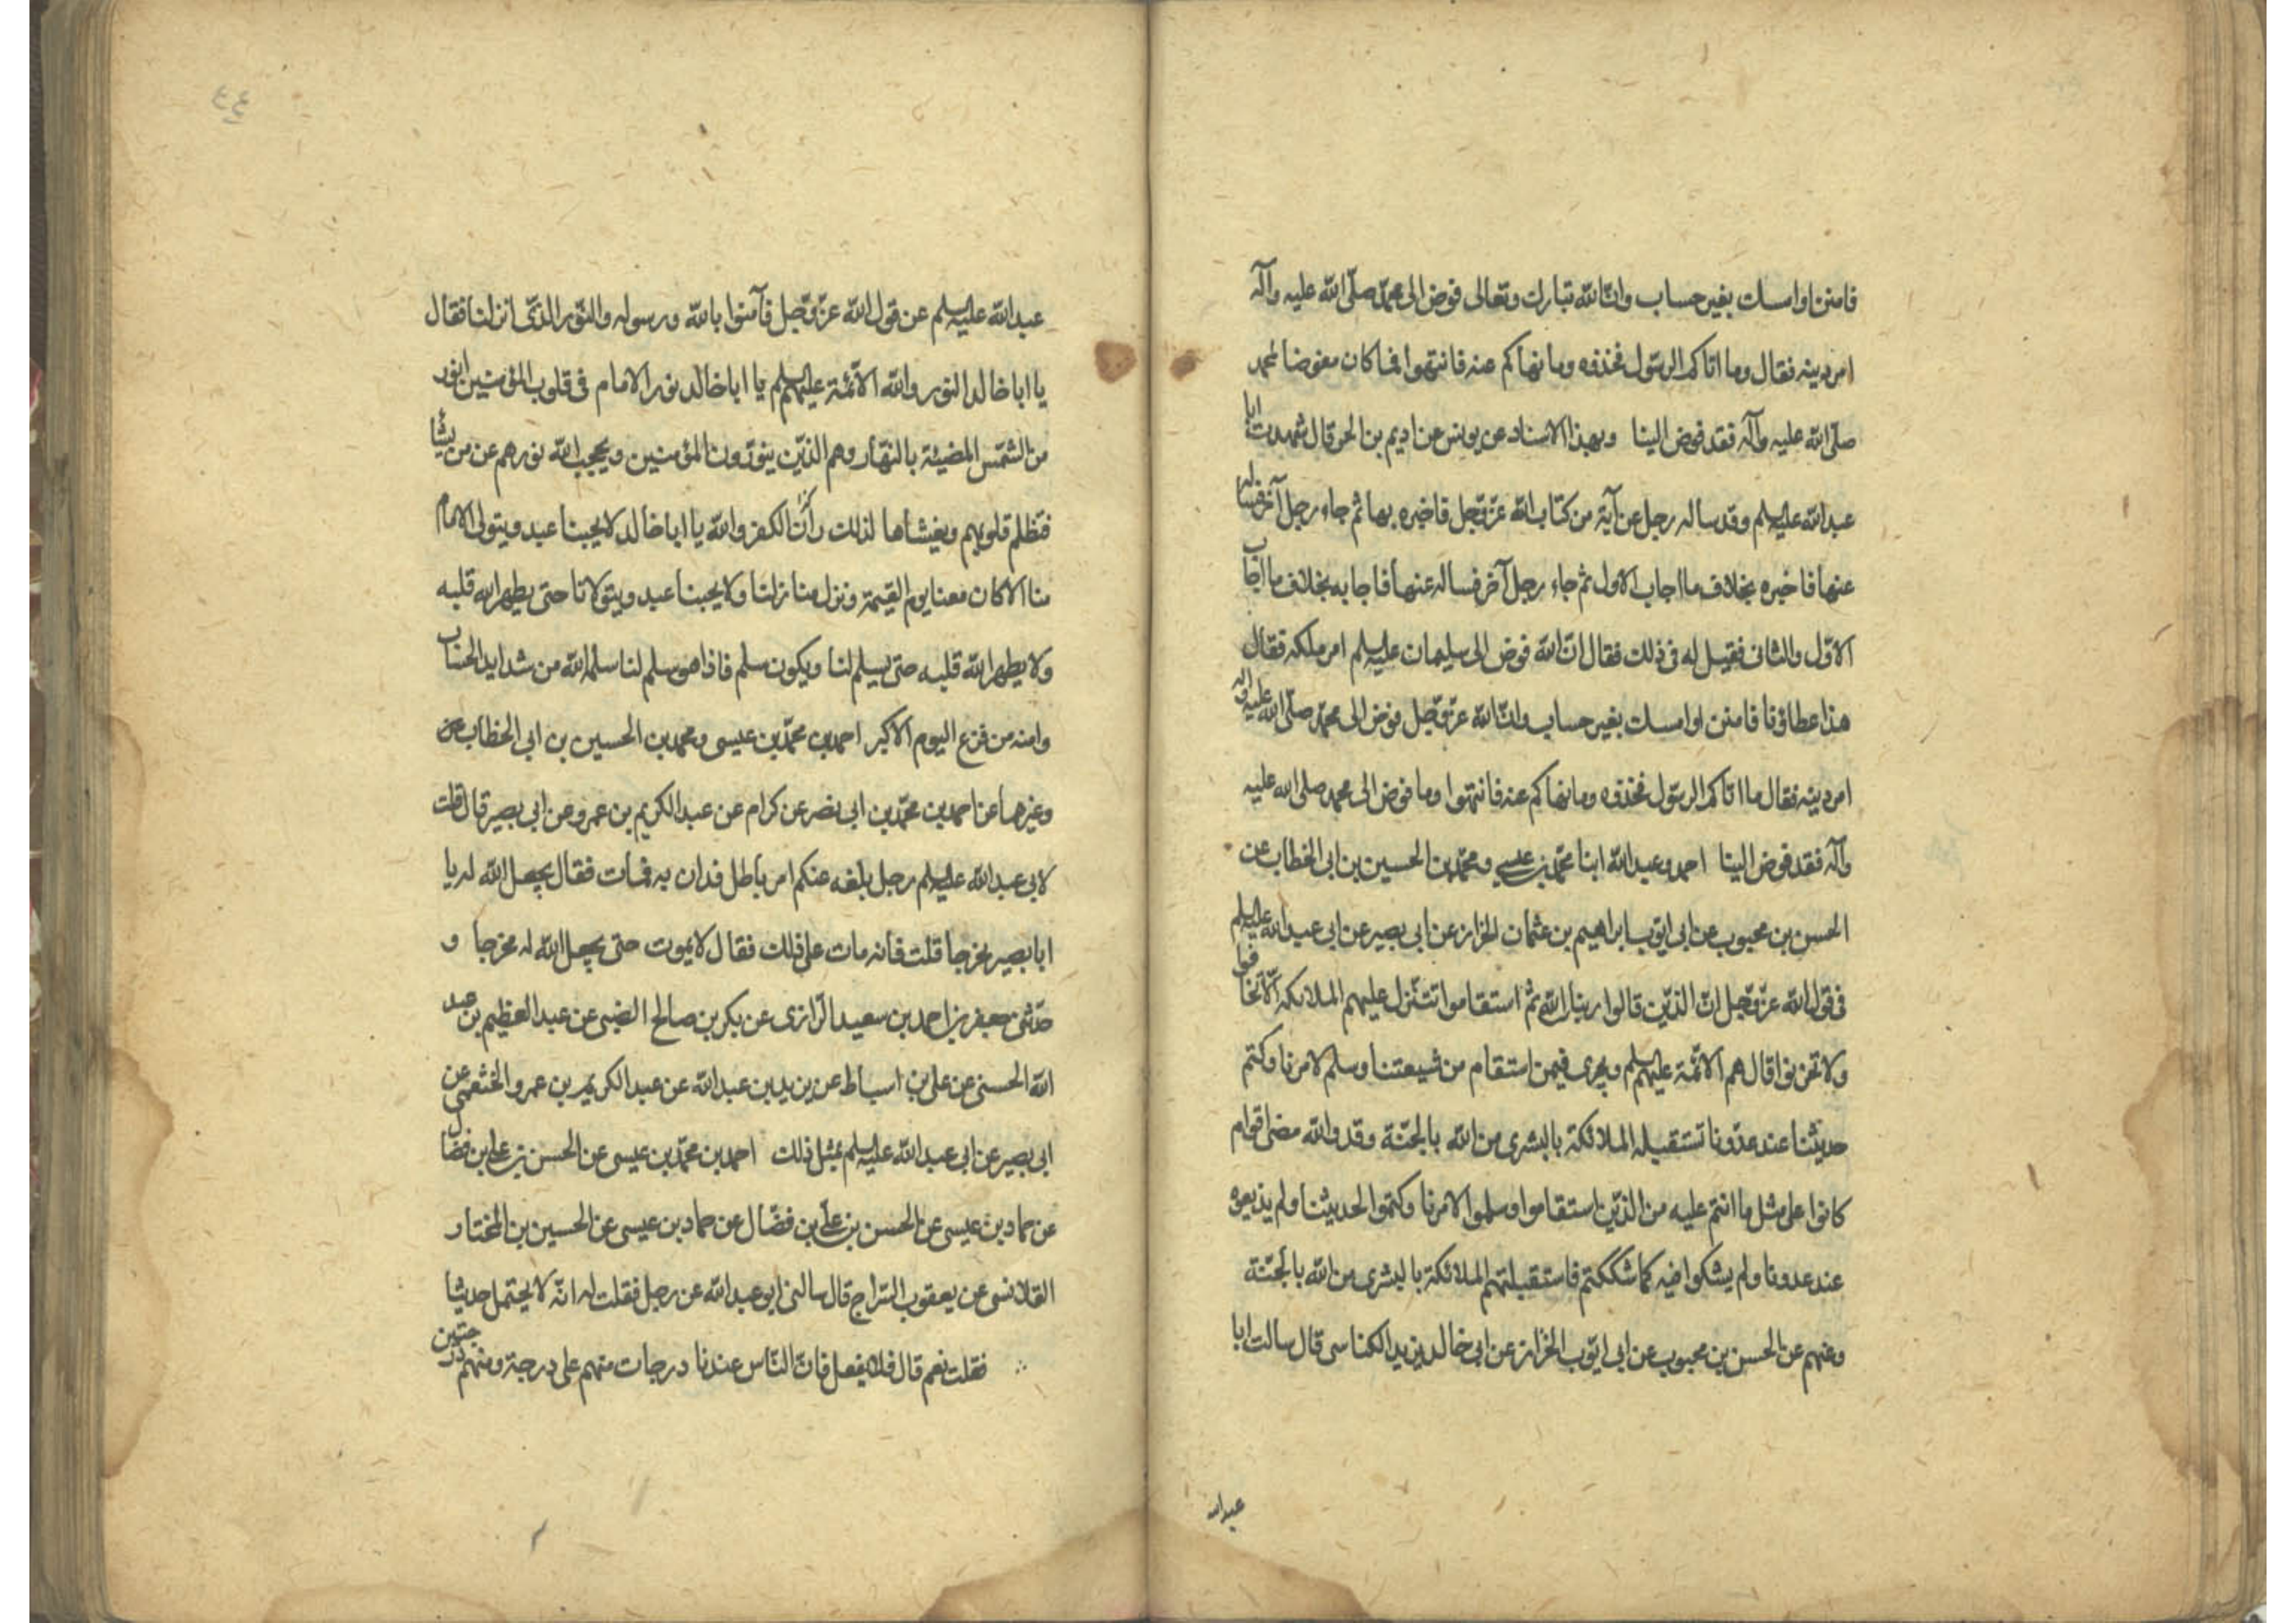 فامنن او امسك بغير حساب وان الله تبارك وتعالى فوض الى محمد صلى الله عليه وآله
امر دينه فقال وما اتاكم الرسول فخذوه وما نهاكم عنه فانتهوا فما كان مفوضا لمحمد
صلى الله عليه وآله فقد فوض الينا وبهذا الاسناد عن يونس عن اديم بن الحر قال شهدت ابا
عبدالله عليه السلم وقد ساله رجل عن آية من كتاب الله عز وجل فاخبره بها ثم جاء رجل آخر فساله
عنها فاخبره بخلاف ما اجاب الاول ثم جاء رجل آخر فساله عنها فاجابه بخلاف ما اجاب
الاول والثانى فقيل له فى ذلك فقال ان الله فوض الى سليمان عليه السلم امر ملكه فقال
هذا عطاؤنا فامنن او امسك بغير حساب وان الله عز وجل فوض الى محمد صلى الله عليه واله
امر دينه فقال ما اتاكم الرسول فخذوه وما نهاكم عنه فانتهوا وما فوض الى محمد صلى الله عليه
وآله فقد فوض الينا احمد وعبدالله ابنا محمد بن عيسى ومحمد بن الحسين بن ابى الخطاب عن
الحسن بن محبوب عن ابى ايوب ابراهيم بن عثمان الخزاز عن ابى بصير عن ابى عبدالله عليه السلم
فى قول الله عز وجل ان الذين قالوا ربنا الله ثم استقاموا تتنزل عليهم الملائكة الا تخافوا
ولا تحزنوا قال هم الائمة عليهم السلم ويجرى فيمن استقام من شيعتنا وسلم لامرنا وكتم
حديثنا عند عدونا تستقبله الملائكة بالبشرى من الله بالجنة وقد والله مضى اقوام
كانوا على مثل ما انتم عليه من الذين استقاموا وسلموا لامرنا وكتموا الحديثنا ولم يذيعوه
عند عدونا ولم يشكوا فيه كما شككتم فاستقبلتهم الملائكة بالبشرى من الله بالجنة
وعنهم عن الحسن بن محبوب عن ابى ايوب الخزاز عن ابى خالد يزيد الكناسى قال سالت ابا
عبدالله
٤٤
عبدالله عليه السلم عن قول الله عز وجل فآمنوا بالله ورسوله والنور الذى انزلنا فقال
يا ابا خالد النور والله الائمة عليهم السلم يا ابا خالد نور الامام فى قلوب المؤمنين انور
من الشمس المضيئة بالنهار وهم الذين ينورون المؤمنين ويحجب الله نورهم عن من يشا
فتظلم قلوبهم ويغشاها لذلك ران الكفر والله يا ابا خالد لا يحبنا عبد ويتولى الامام
منا الا كان معنا يوم القيمة ونزل منازلنا ولا يحبنا عبد ويتولانا حتى يطهر الله قلبه
ولا يطهر الله قلبه حتى يسلم لنا ويكون سلم فاذا هو سلم لنا سلمه الله من شدايد الحساب
وامنه من فزع اليوم الاكبر احمد بن محمد بن عيسى ومحمد بن الحسين بن ابى الخطاب عن
وغيرهما عن احمد بن محمد بن ابى نصر عن كرام عن عبدالكريم بن عمرو عن ابى بصير قال قلت
لابى عبدالله عليه السلم رجل بلغه عنكم امر باطل فدان به فمات فقال يجعل الله له يا
ابا بصير مخرجا قلت فانه مات على ذلك فقال لا يموت حتى يجعل الله له مخرجا و
حدثنى جعفر بن احمد بن سعيد الرازى عن بكر بن صالح الضبى عن عبدالعظيم بن عبد
الله الحسنى عن على بن اسباط عن يزيد بن عبدالله عن عبدالكريم بن عمرو الخثعمى عن
ابى بصير عن ابى عبدالله عليه السلم بمثل ذلك احمد بن محمد بن عيسى عن الحسن بن على بن فضال
عن حماد بن عيسى عن الحسن بن على بن فضال عن حماد بن عيسى عن الحسين بن المختار
القلانسى عن يعقوب السراج قال سالنى ابو عبدالله عن رجل فقلت له انه لا يحتمل حديثا
فقلت نعم قال فلا يفعل فان الناس عندنا درجات منهم على درجة ومنهم درجتين